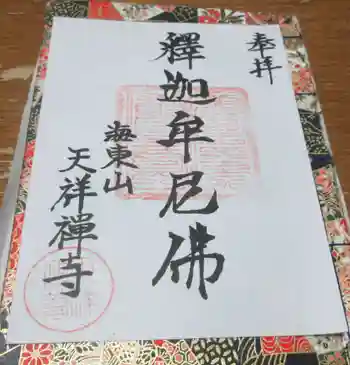 奉拝
釋迦牟尼佛
海東山
天祥禅寺